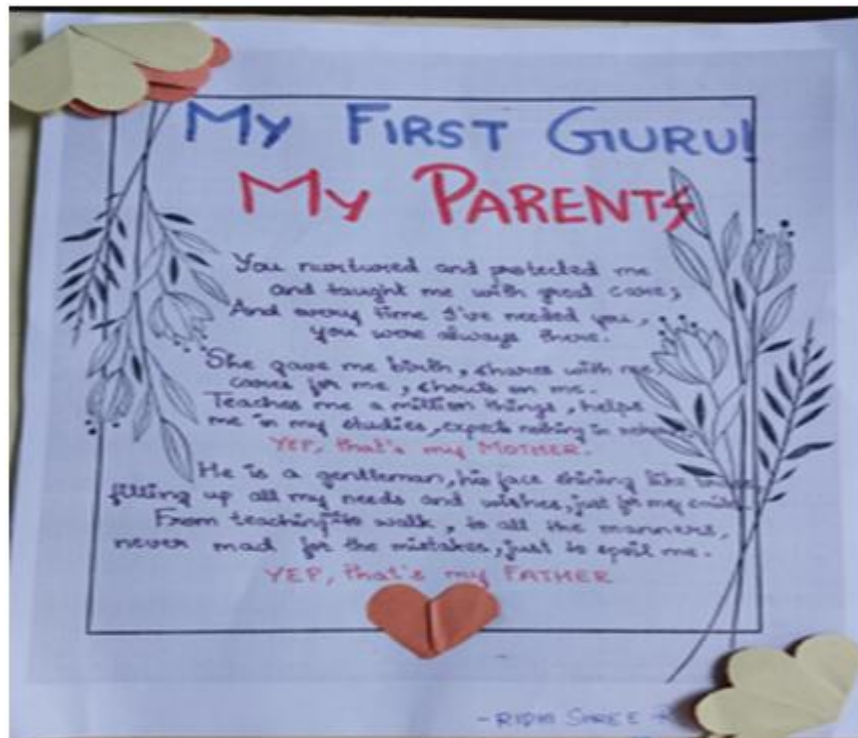 My FIRST GURU!
My PARENTS
You nurtured and protected me
and taught me with great care;
And every time I've needed you,
you were always there.
She gave me birth, shares with me,
cares for me, shouts on me.
Teaches me a million things, helps
me in my studies, expects nothing in
YEP, that's my MOTHER.
He is a gentleman, his face shining like
filling up all my needs and wishes, just for my
From teaching to walk, to all the manners,
never mad for the mistakes, just to spoil me.
YEP, that's my FATHER
- RIDHI SHREE